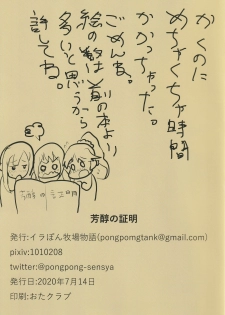 かくのに
めちゃくちゃ時間
かかっちゃった。
ごめんな。
絵の数は前の本より
多いと思うから
許してね。
芳醇の証明
芳醇の証明
発行:イラぽん牧場物語(pongpomgtank@gmail.com)
pixiv:1010208
twitter:@pongpong-sensya
発行日:2020年7月14日
印刷:おたクラブ